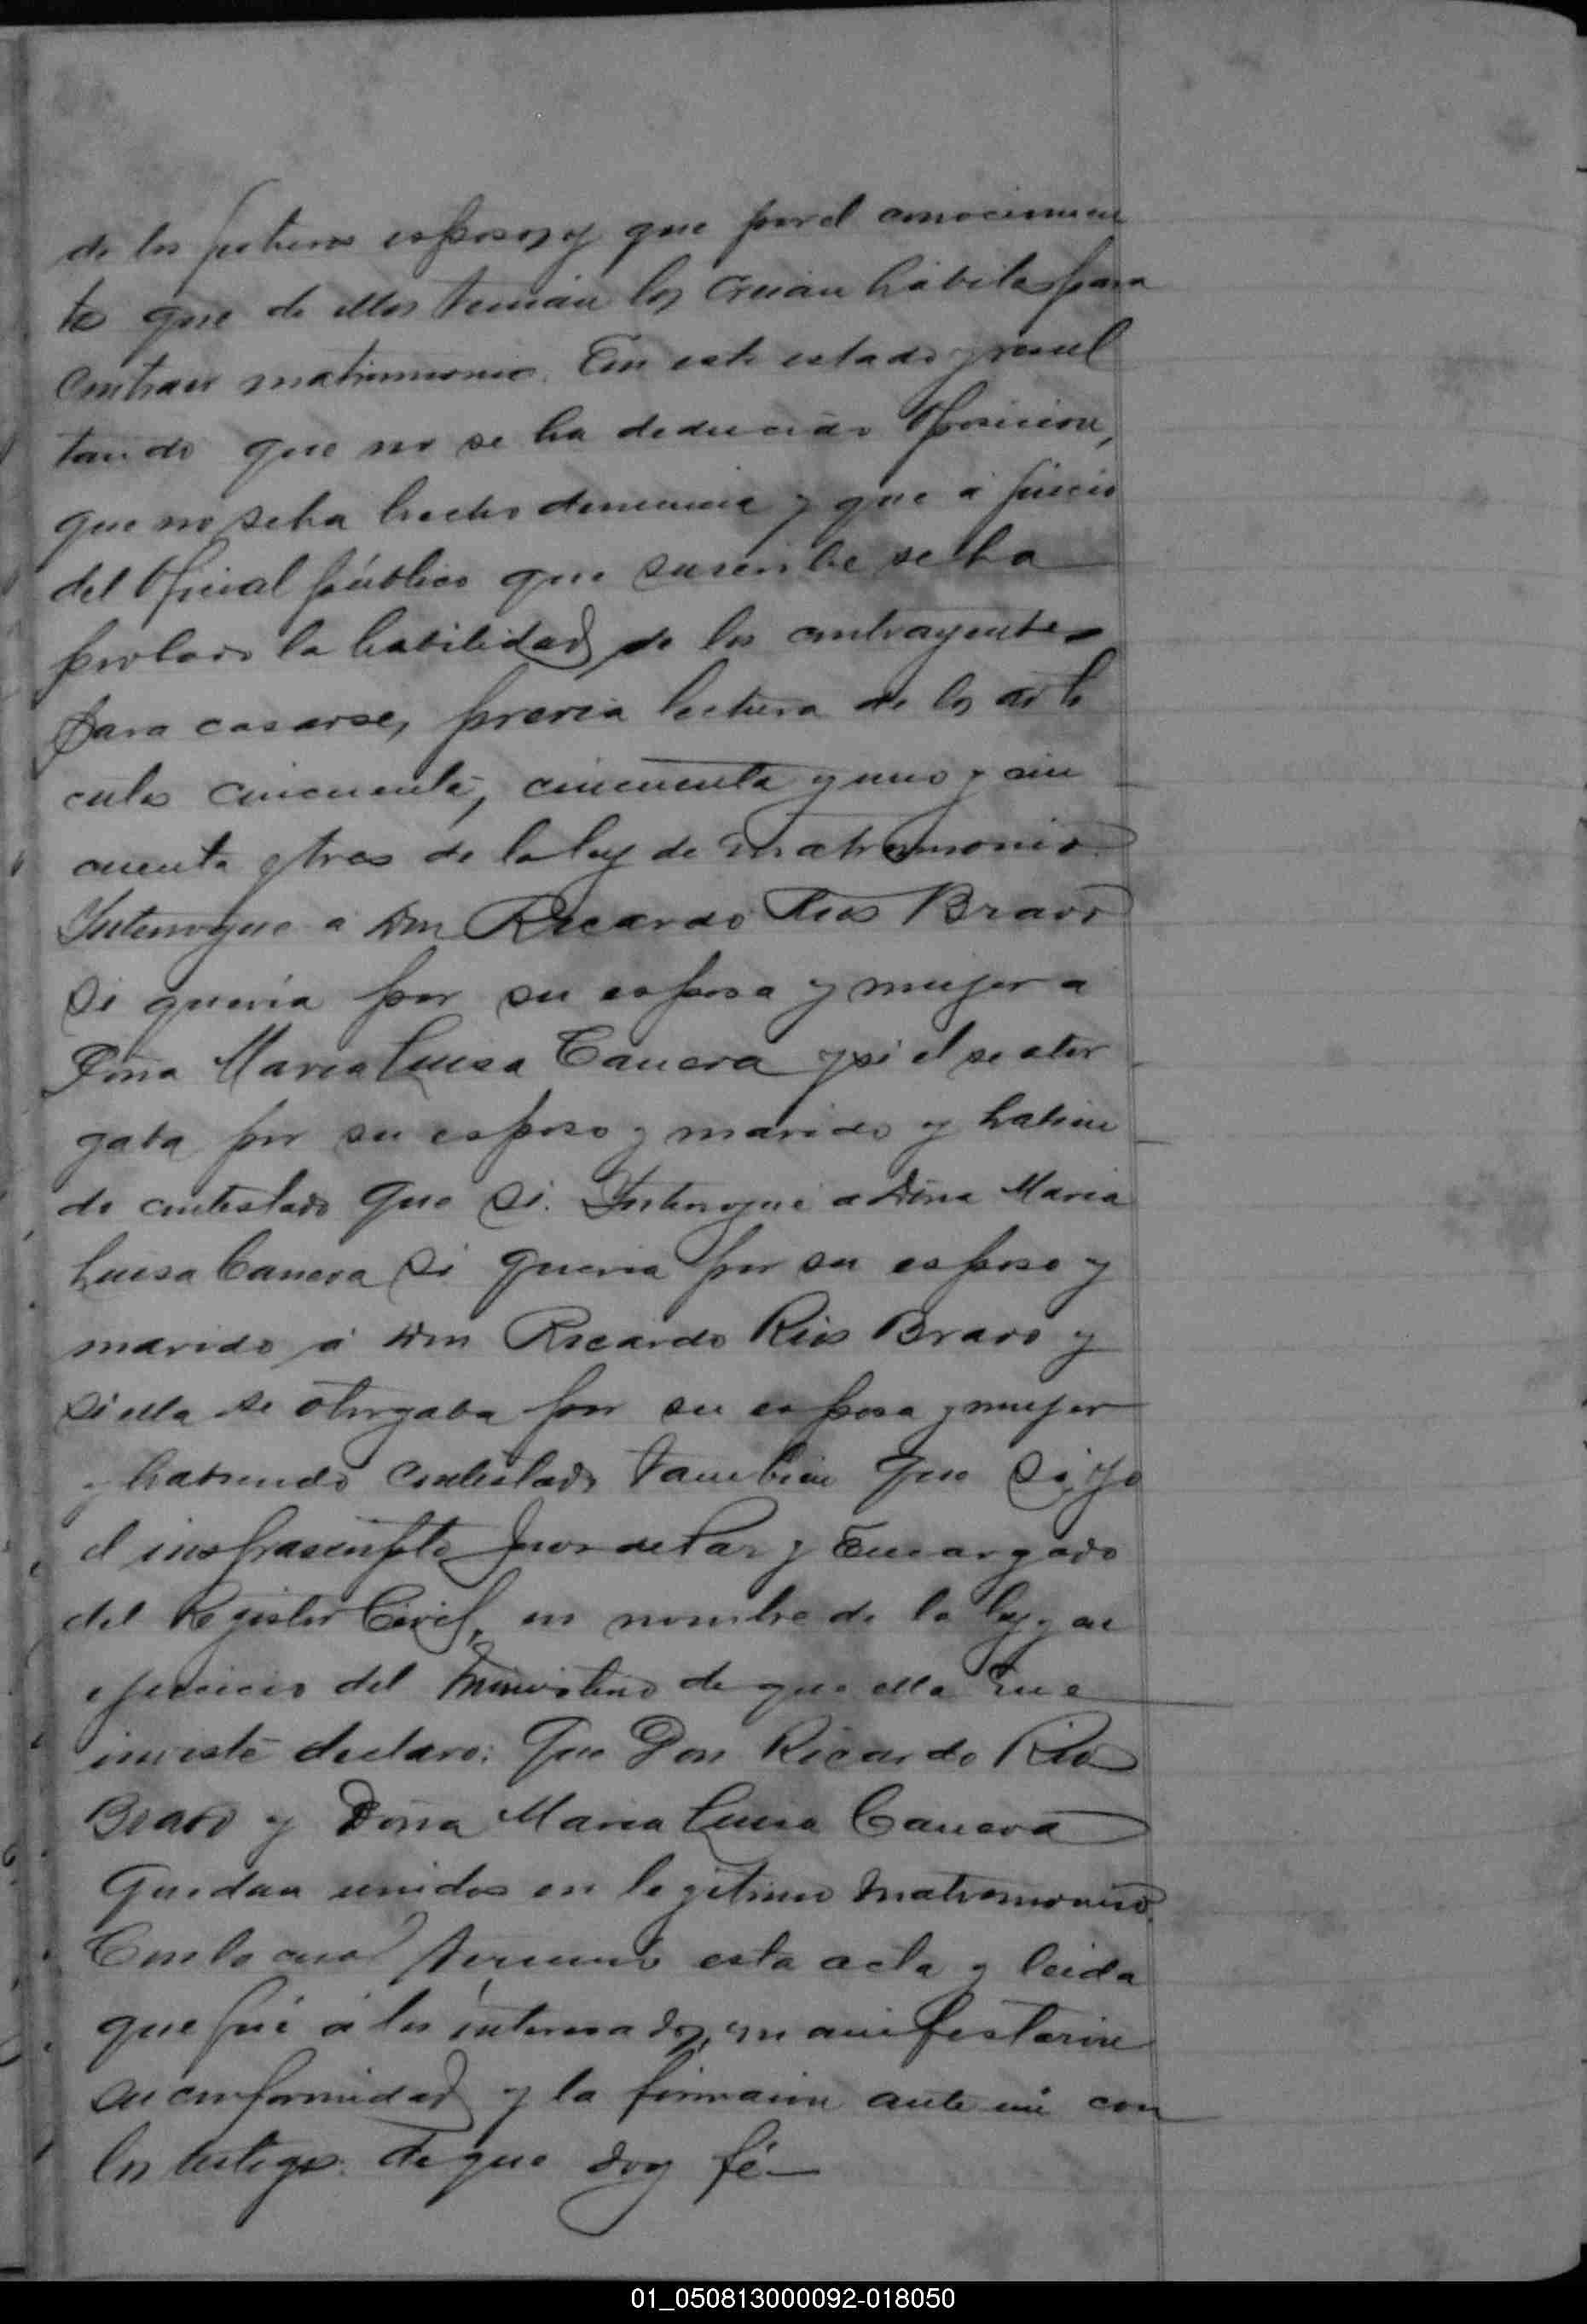 de los futuros esposos y que por el conocimien
to que de ellos tenian los creian habiles para
contraer matrimonio. En este estado y resul
tando que no se ha deducido oposicion,
que no se ha hecho denuncia y que á juicio
del Oficial público que suscribe se ha
probado la habilidad de los contrayentes
para casarse, previa lectura de los arti
culos cincuenta, cincuenta y uno y cin
cuenta y tres de la ley de matrimonio.
Interrogue a Don Ricardo Rios Bravo
si queria por su esposa y mujer a
Doña Maria Luisa Canera y si el se otor
gaba por su esposo y marido y habien
do contestado que si. Interrogué a Doña Maria
Luisa Canera si queria por su esposo y
marido á Don Ricardo Rios Bravo y
si ella se otorgaba por su esposa y mujer
y habiendo contestado tambien que si, yo
el infrascripto Juez de Paz y Encargado
del Registro Civil, en nombre de la ley y en
ejercicio del ministerio de que ella me
inviste declaro: Que Don Ricardo Rios
Bravo y Doña Maria Luisa Canera
quedan unidos en legitimo matrimonio.
Con lo cual terminó esta acta y leida
que fué á los interesados, manifestaron
su conformidad y la firmaron ante mi con
los testigos de que doy fé—
01_050813000092-018050